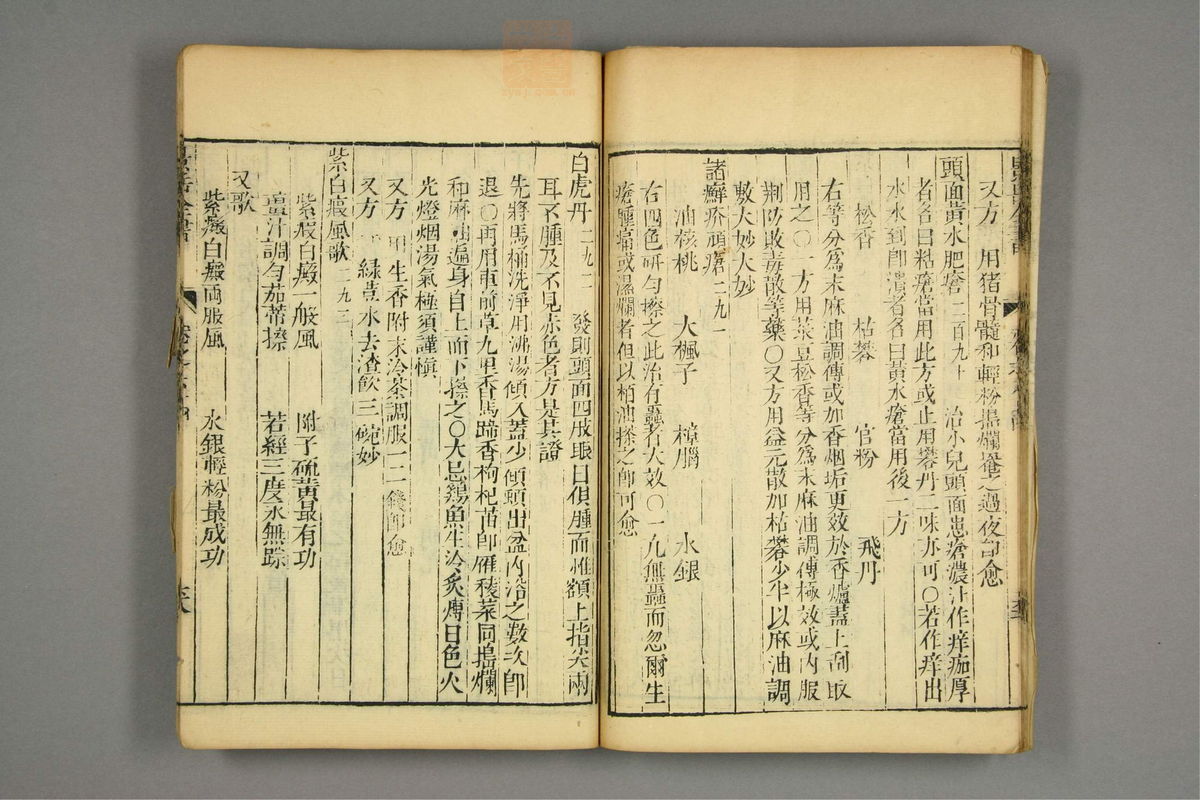 又方 用猪骨髓和輕粉搗爛塗之過夜卽愈
頭面黃水肥瘡 二百九十 治小兒頭面患瘡濃汁作痒痂厚
者名曰粘瘡當用此方或止用礬丹二味亦可○若作痒出
水水到卽潰者名曰黃水瘡當用後一方
松香 枯礬 官粉 飛丹
右等分爲末麻油調傅或加香烟垢更效於香爐蓋上刮取
用之○一方用菉豆松香等分爲末麻油調傅極效或內服
荆防敗毒散等藥○又方用益元散加枯礬少半以麻油調
敷大妙大妙
諸癬疥頑瘡 二九一
油核桃 大楓子 樟腦 水銀
右四色研勻擦之此治有蟲者大效○一凡無蟲而忽爾生
瘡腫痛或濕爛者但以柏油擦之卽可愈
白虎丹 二九二 發則頭面四肢眼目俱腫而惟額上指尖兩
耳不腫及不見赤色者方是其證
先將馬桶洗淨用沸湯傾入蓋少頃傾出盆內浴之數次卽
退○再用車前草九里香馬蹄香枸杞苗卽雁稜菜同搗爛
和麻油遍身自上而下擦之○大忌鷄魚生冷炙煿日色火
光燈烟湯氣極須謹慎
又方 用生香附末冷茶調服一二錢卽愈
又方 綠豆水去渣飲三碗妙
紫白癜風歌 二九三
紫癜白癜一般風 附子硫黃最有功
薑汁調勻茄蒂擦 若經三度永無踪
又歌
紫癜白癜兩般風 水銀輕粉最成功